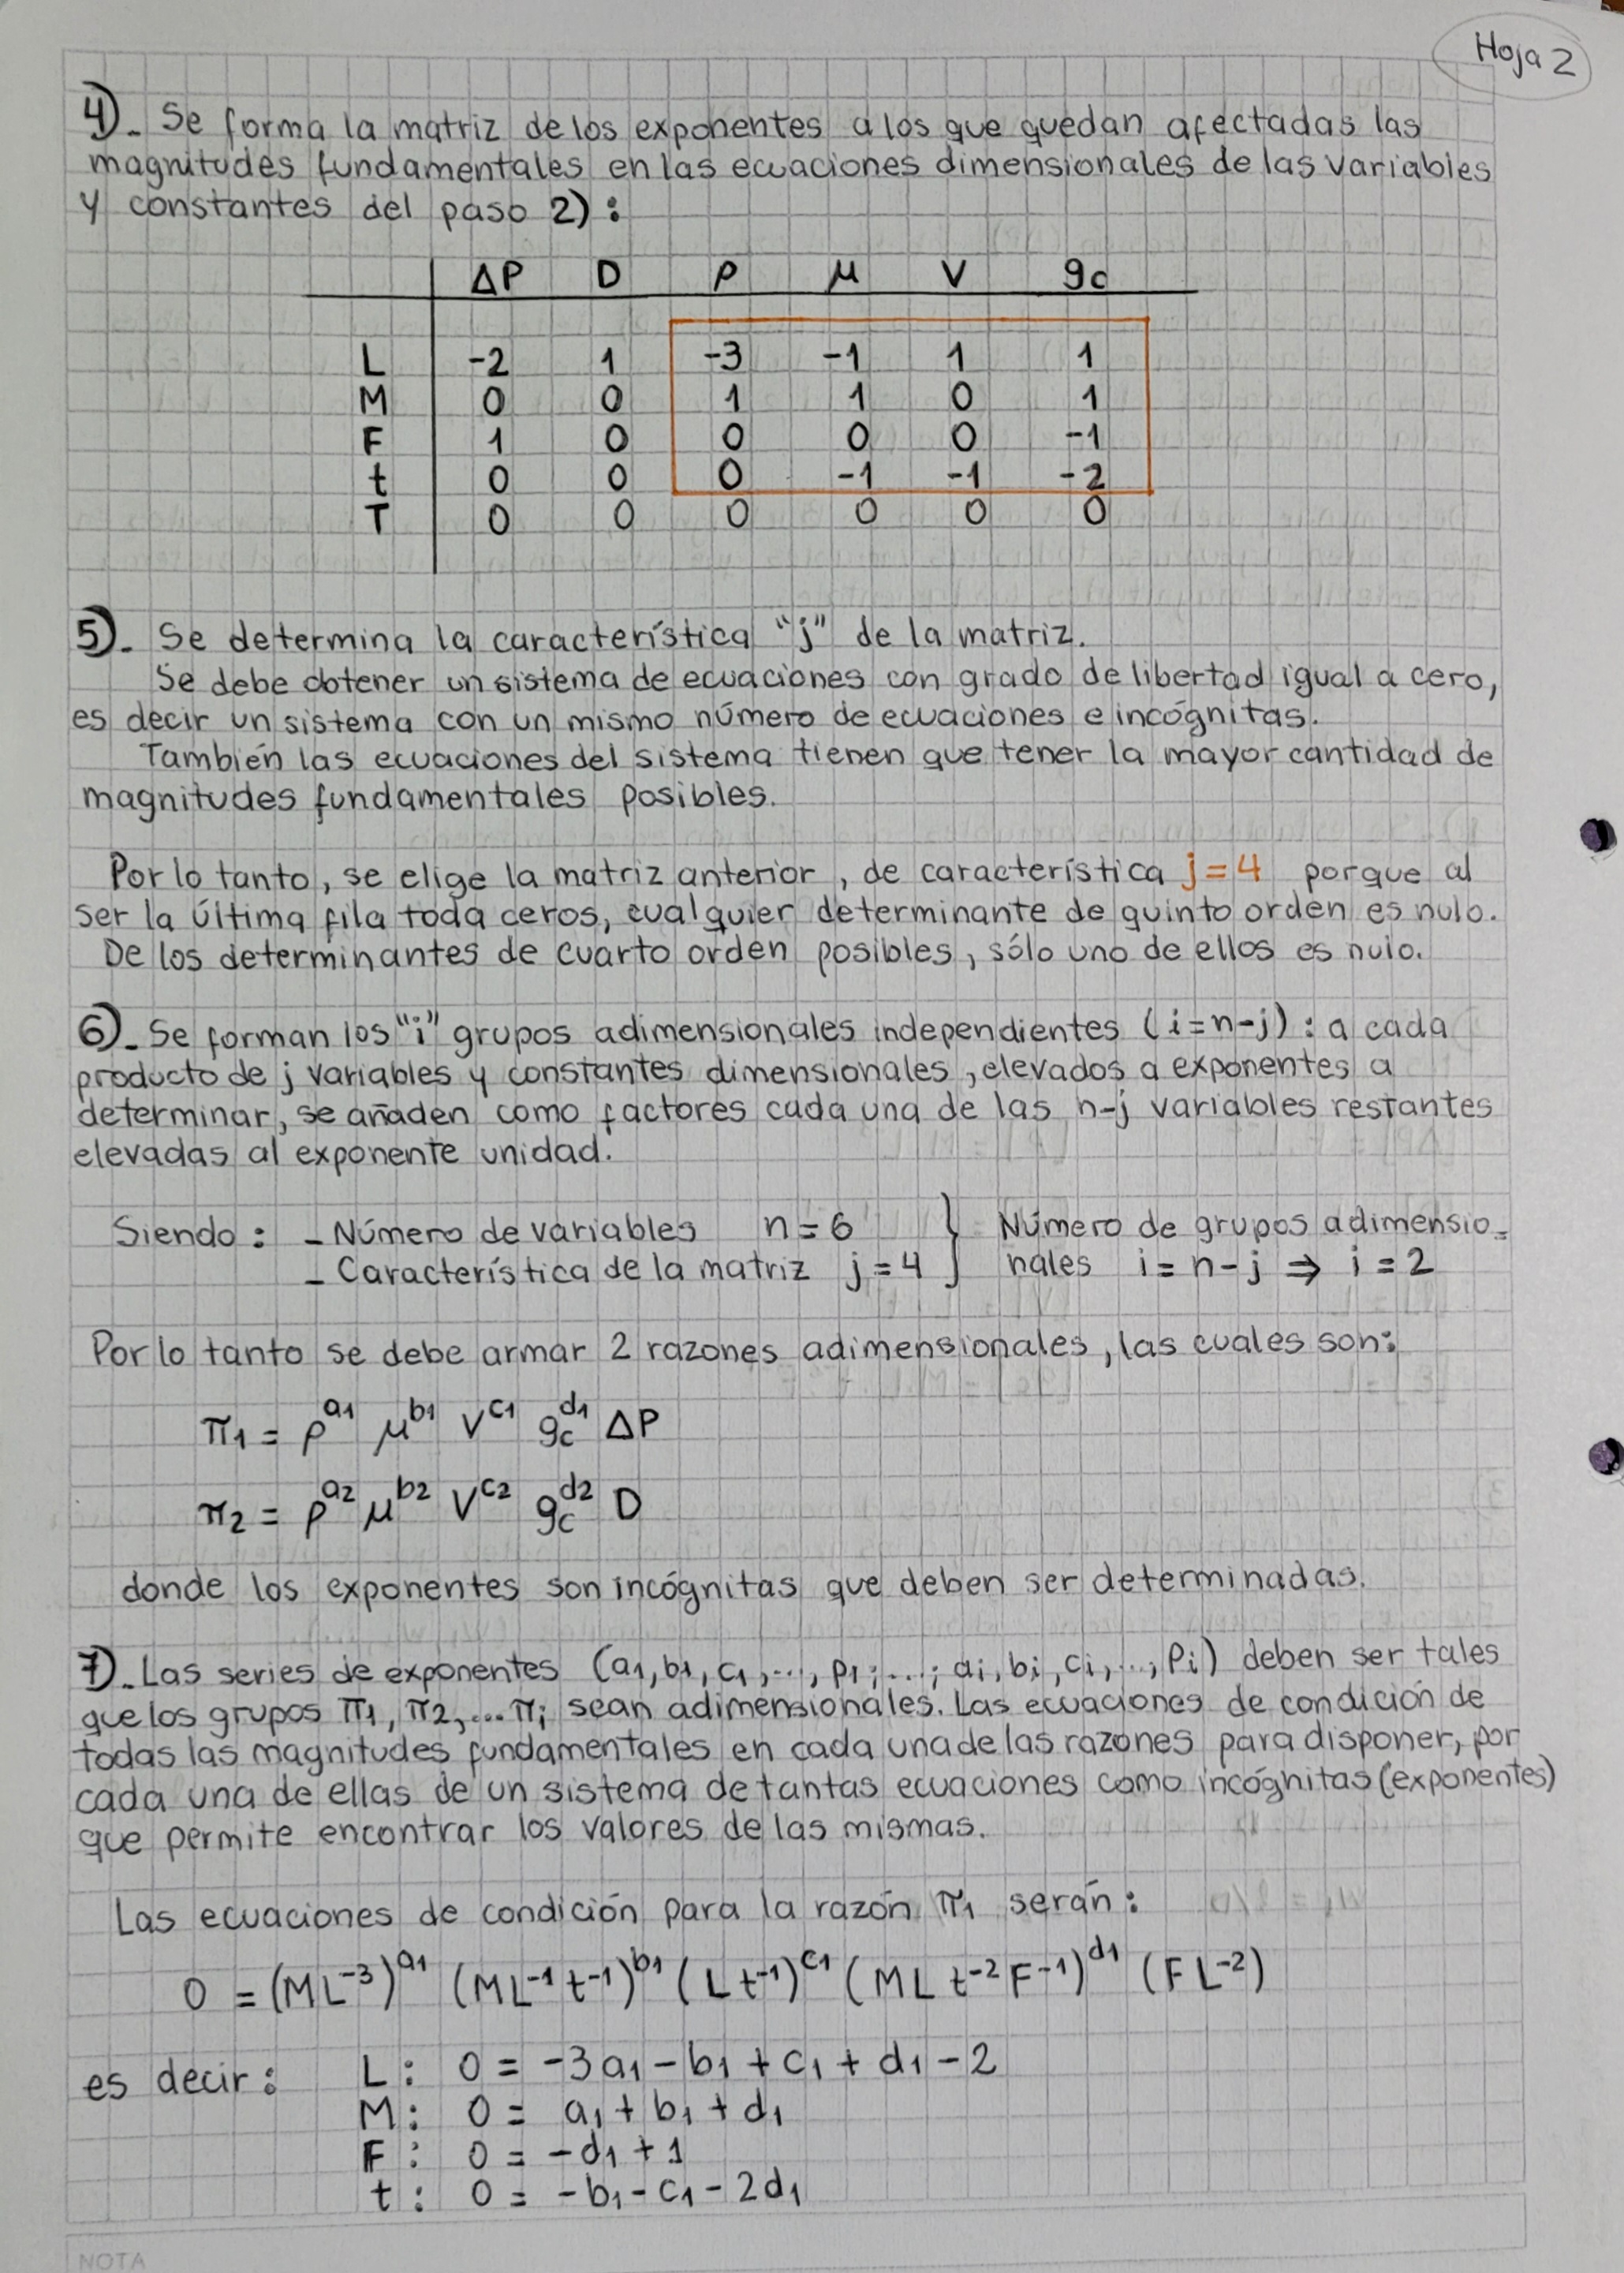 Hoja 2
4)- Se forma la matriz de los exponentes a los que quedan afectadas las
magnitudes fundamentales en las ecuaciones dimensionales de las variables
y constantes del paso 2):
ΔP D ρ μ V gc
L -2 1 -3 -1 1 1
M 0 0 1 1 0 1
F 1 0 0 0 0 -1
t 0 0 0 -1 -1 -2
T 0 0 0 0 0 0
5)- Se determina la característica "j" de la matriz.
Se debe obtener un sistema de ecuaciones con grado de libertad igual a cero,
es decir un sistema con un mismo número de ecuaciones e incógnitas.
También las ecuaciones del sistema tienen que tener la mayor cantidad de
magnitudes fundamentales posibles.
Por lo tanto, se elige la matriz anterior, de característica j=4 porque al
ser la última fila toda ceros, cualquier determinante de quinto orden es nulo.
De los determinantes de cuarto orden posibles, sólo uno de ellos es nulo.
6)- Se forman los "i" grupos adimensionales independientes (i=n-j): a cada
producto de j variables y constantes dimensionales, elevados a exponentes a
determinar, se añaden como factores cada una de las n-j variables restantes
elevadas al exponente unidad.
Siendo: - Número de variables n=6 } Número de grupos adimensio-
- Característica de la matriz j=4 } nales i=n-j ⇒ i=2
Por lo tanto se debe armar 2 razones adimensionales, las cuales son:
π1 = ρ^a1 μ^b1 V^c1 gc^d1 ΔP
π2 = ρ^a2 μ^b2 V^c2 gc^d2 D
donde los exponentes son incógnitas que deben ser determinadas.
7)- Las series de exponentes (a1, b1, c1, ..., p1; ...; ai, bi, ci, ..., Pi) deben ser tales
que los grupos π1, π2, ... πi sean adimensionales. Las ecuaciones de condición de
todas las magnitudes fundamentales en cada una de las razones para disponer, por
cada una de ellas de un sistema de tantas ecuaciones como incógnitas (exponentes)
que permite encontrar los valores de las mismas.
Las ecuaciones de condición para la razón π1 serán:
0 = (ML^-3)^a1 (ML^-1 t^-1)^b1 (Lt^-1)^c1 (MLt^-2 F^-1)^d1 (FL^-2)
es decir: L: 0 = -3a1 - b1 + c1 + d1 - 2
M: 0 = a1 + b1 + d1
F: 0 = -d1 + 1
t: 0 = -b1 - c1 - 2d1
NOTA